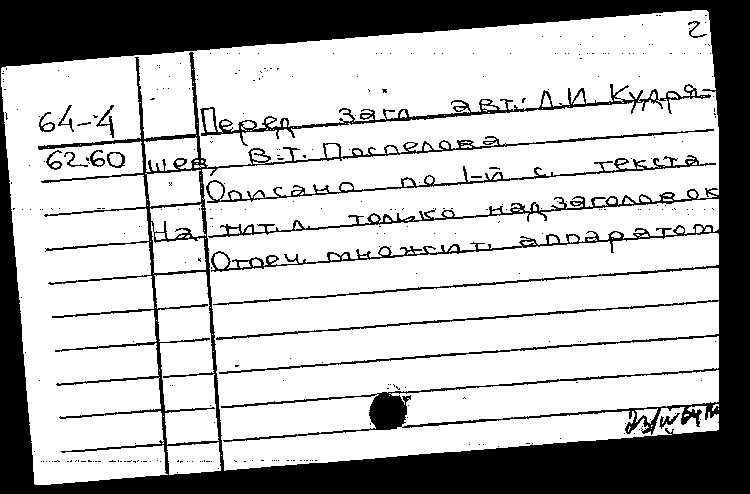 2
64-4 Перед загл. авт.: Л.И. Кудря-
62.60 шев, В.Т. Поспелова
Описано по 1-й с. текста
На тит. л. только надзаголовок
Отпеч. множит. аппаратом